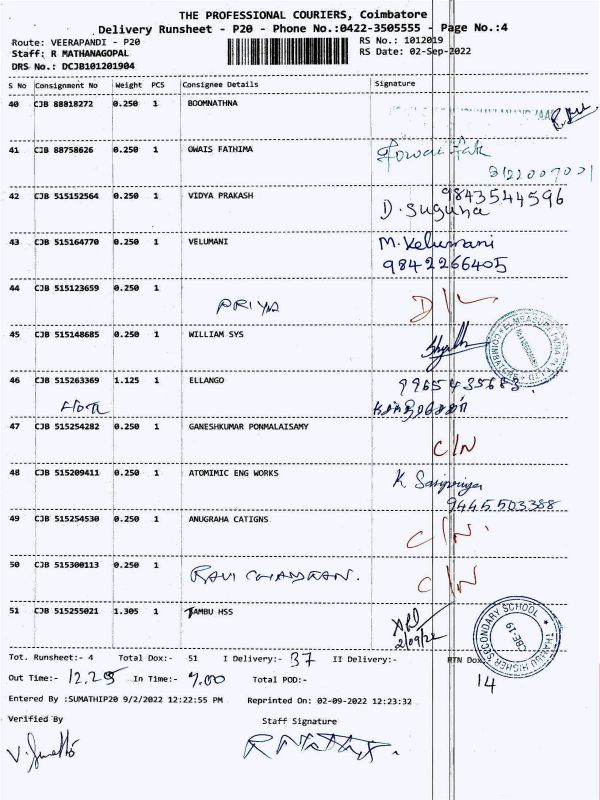 THE PROFESSIONAL COURIERS, Coimbatore
Delivery Runsheet - P20 - Phone No.:0422-3505555 - Page No.:4
Route: VEERAPANDI - P20
RS No.: 1012019
Staff: R MATHANAGOPAL
RS Date: 02-Sep-2022
DRS No.: DCJB101201904
S No Consignment No Weight PCS Consignee Details Signature
40 CJB 88818272 0.250 1 BOOMNATHNA
41 CJB 88758626 0.250 1 OWAIS FATHIMA
42 CJB 515152564 0.250 1 VIDYA PRAKASH 9843544596
D. Suguna
43 CJB 515164770 0.250 1 VELUMANI M. Velumani
9842266405
44 CJB 515123659 0.250 1 PRIYA D/L
45 CJB 515148685 0.250 1 WILLIAM SYS
46 CJB 515263369 1.125 1 ELLANGO 9965435683
47 CJB 515254282 0.250 1 GANESHKUMAR PONMALAISAMY C/N
48 CJB 515209411 0.250 1 ATOMIMIC ENG WORKS K Sasipriya
9445503388
49 CJB 515254530 0.250 1 ANUGRAHA CATIGNS C/N.
50 CJB 515300113 0.250 1 RAVI CHANDRAN. C/N
51 CJB 515255021 1.305 1 TAMBU HSS
2/09/22
THAMBU HIGHER SECONDARY SCHOOL
CBE-19
Tot. Runsheet:- 4 Total Dox:- 51 I Delivery:- 37 II Delivery:- RTN Dox:- 14
Out Time:- 12.25 In Time:- 7.00 Total POD:-
Entered By :SUMATHIP20 9/2/2022 12:22:55 PM Reprinted On: 02-09-2022 12:23:32
Verified By Staff Signature